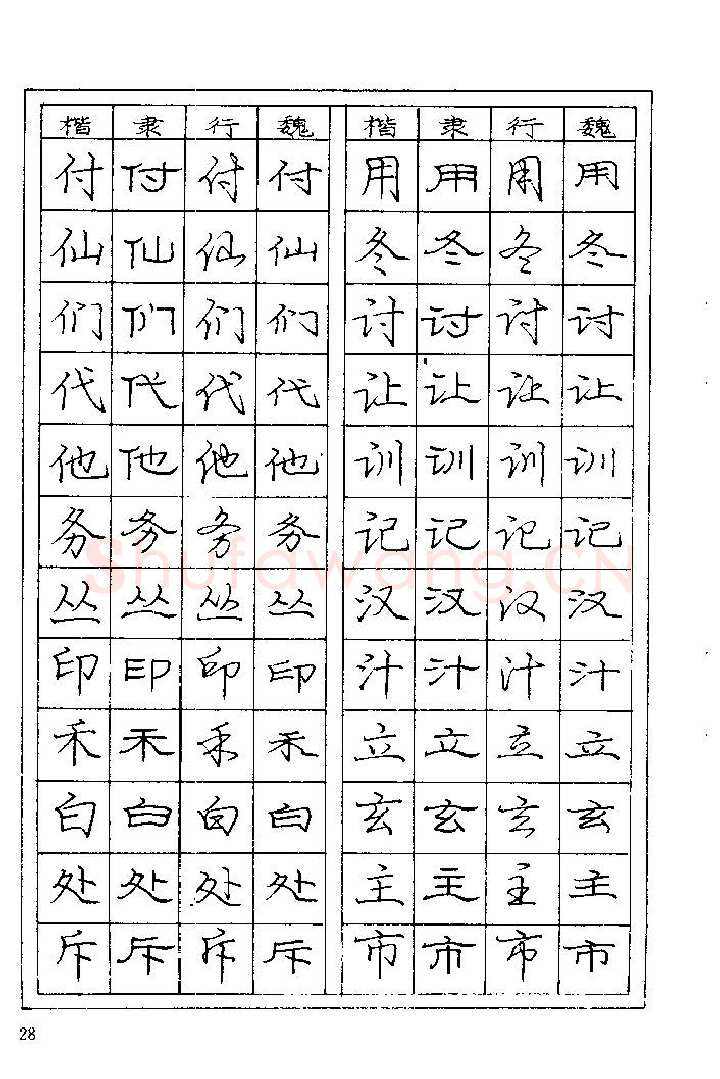 楷 隶 行 魏 楷 隶 行 魏
付 付 付 付 用 用 用 用
仙 仙 仙 仙 冬 冬 冬 冬
们 们 们 们 讨 讨 讨 讨
代 代 代 代 让 让 让 让
他 他 他 他 训 训 训 训
务 务 务 务 记 记 记 记
Shufawang.CN
丛 丛 丛 丛 汉 汉 汉 汉
印 印 印 印 汁 汁 汁 汁
禾 禾 禾 禾 立 立 立 立
白 白 白 白 玄 玄 玄 玄
处 处 处 处 主 主 主 主
斥 斥 斥 斥 市 市 市 市
28